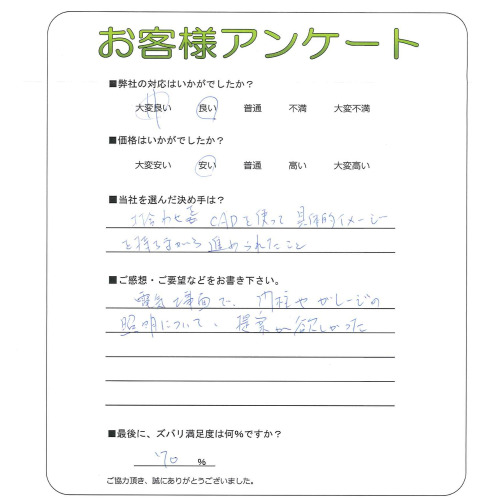 お客様アンケート
■弊社の対応はいかがでしたか?
大変良い 良い 普通 不満 大変不満
■価格はいかがでしたか?
大変安い 安い 普通 高い 大変高い
■当社を選んだ決め手は?
打合わせ CADを使って 具体的イメージ
を持ちながら 進められたこと
■ご感想・ご要望などをお書き下さい。
電気 で、門柱やガレージの
照明について、提案が欲しかった
■最後に、ズバリ満足度は何%ですか?
70 %
ご協力頂き、誠にありがとうございました。